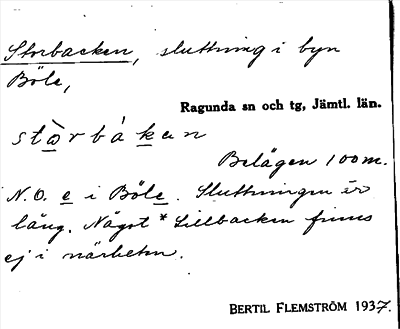 Storbacken, sluttning i byn
Böle,
Ragunda sn och tg, Jämtl. län.
stàrbákan
Belägen 100 m.
N.O. e i Böle. Sluttningen är
lång. Något *Lillbacken finns
ej i närheten.
BERTIL FLEMSTRÖM 1937.